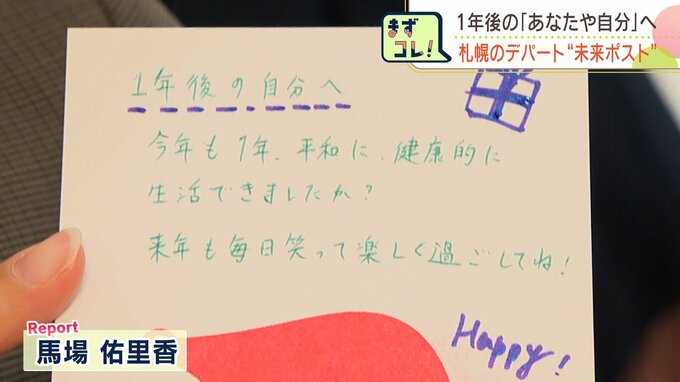 まず
コレ!
1年後の「あなたや自分」へ
札幌のデパート“未来ポスト”
1年後の自分へ
今年も1年、平和に、健康的に
生活できましたか?
来年も毎日笑って楽しく過ごしてね!
Happy!
Report
馬場 佑里香